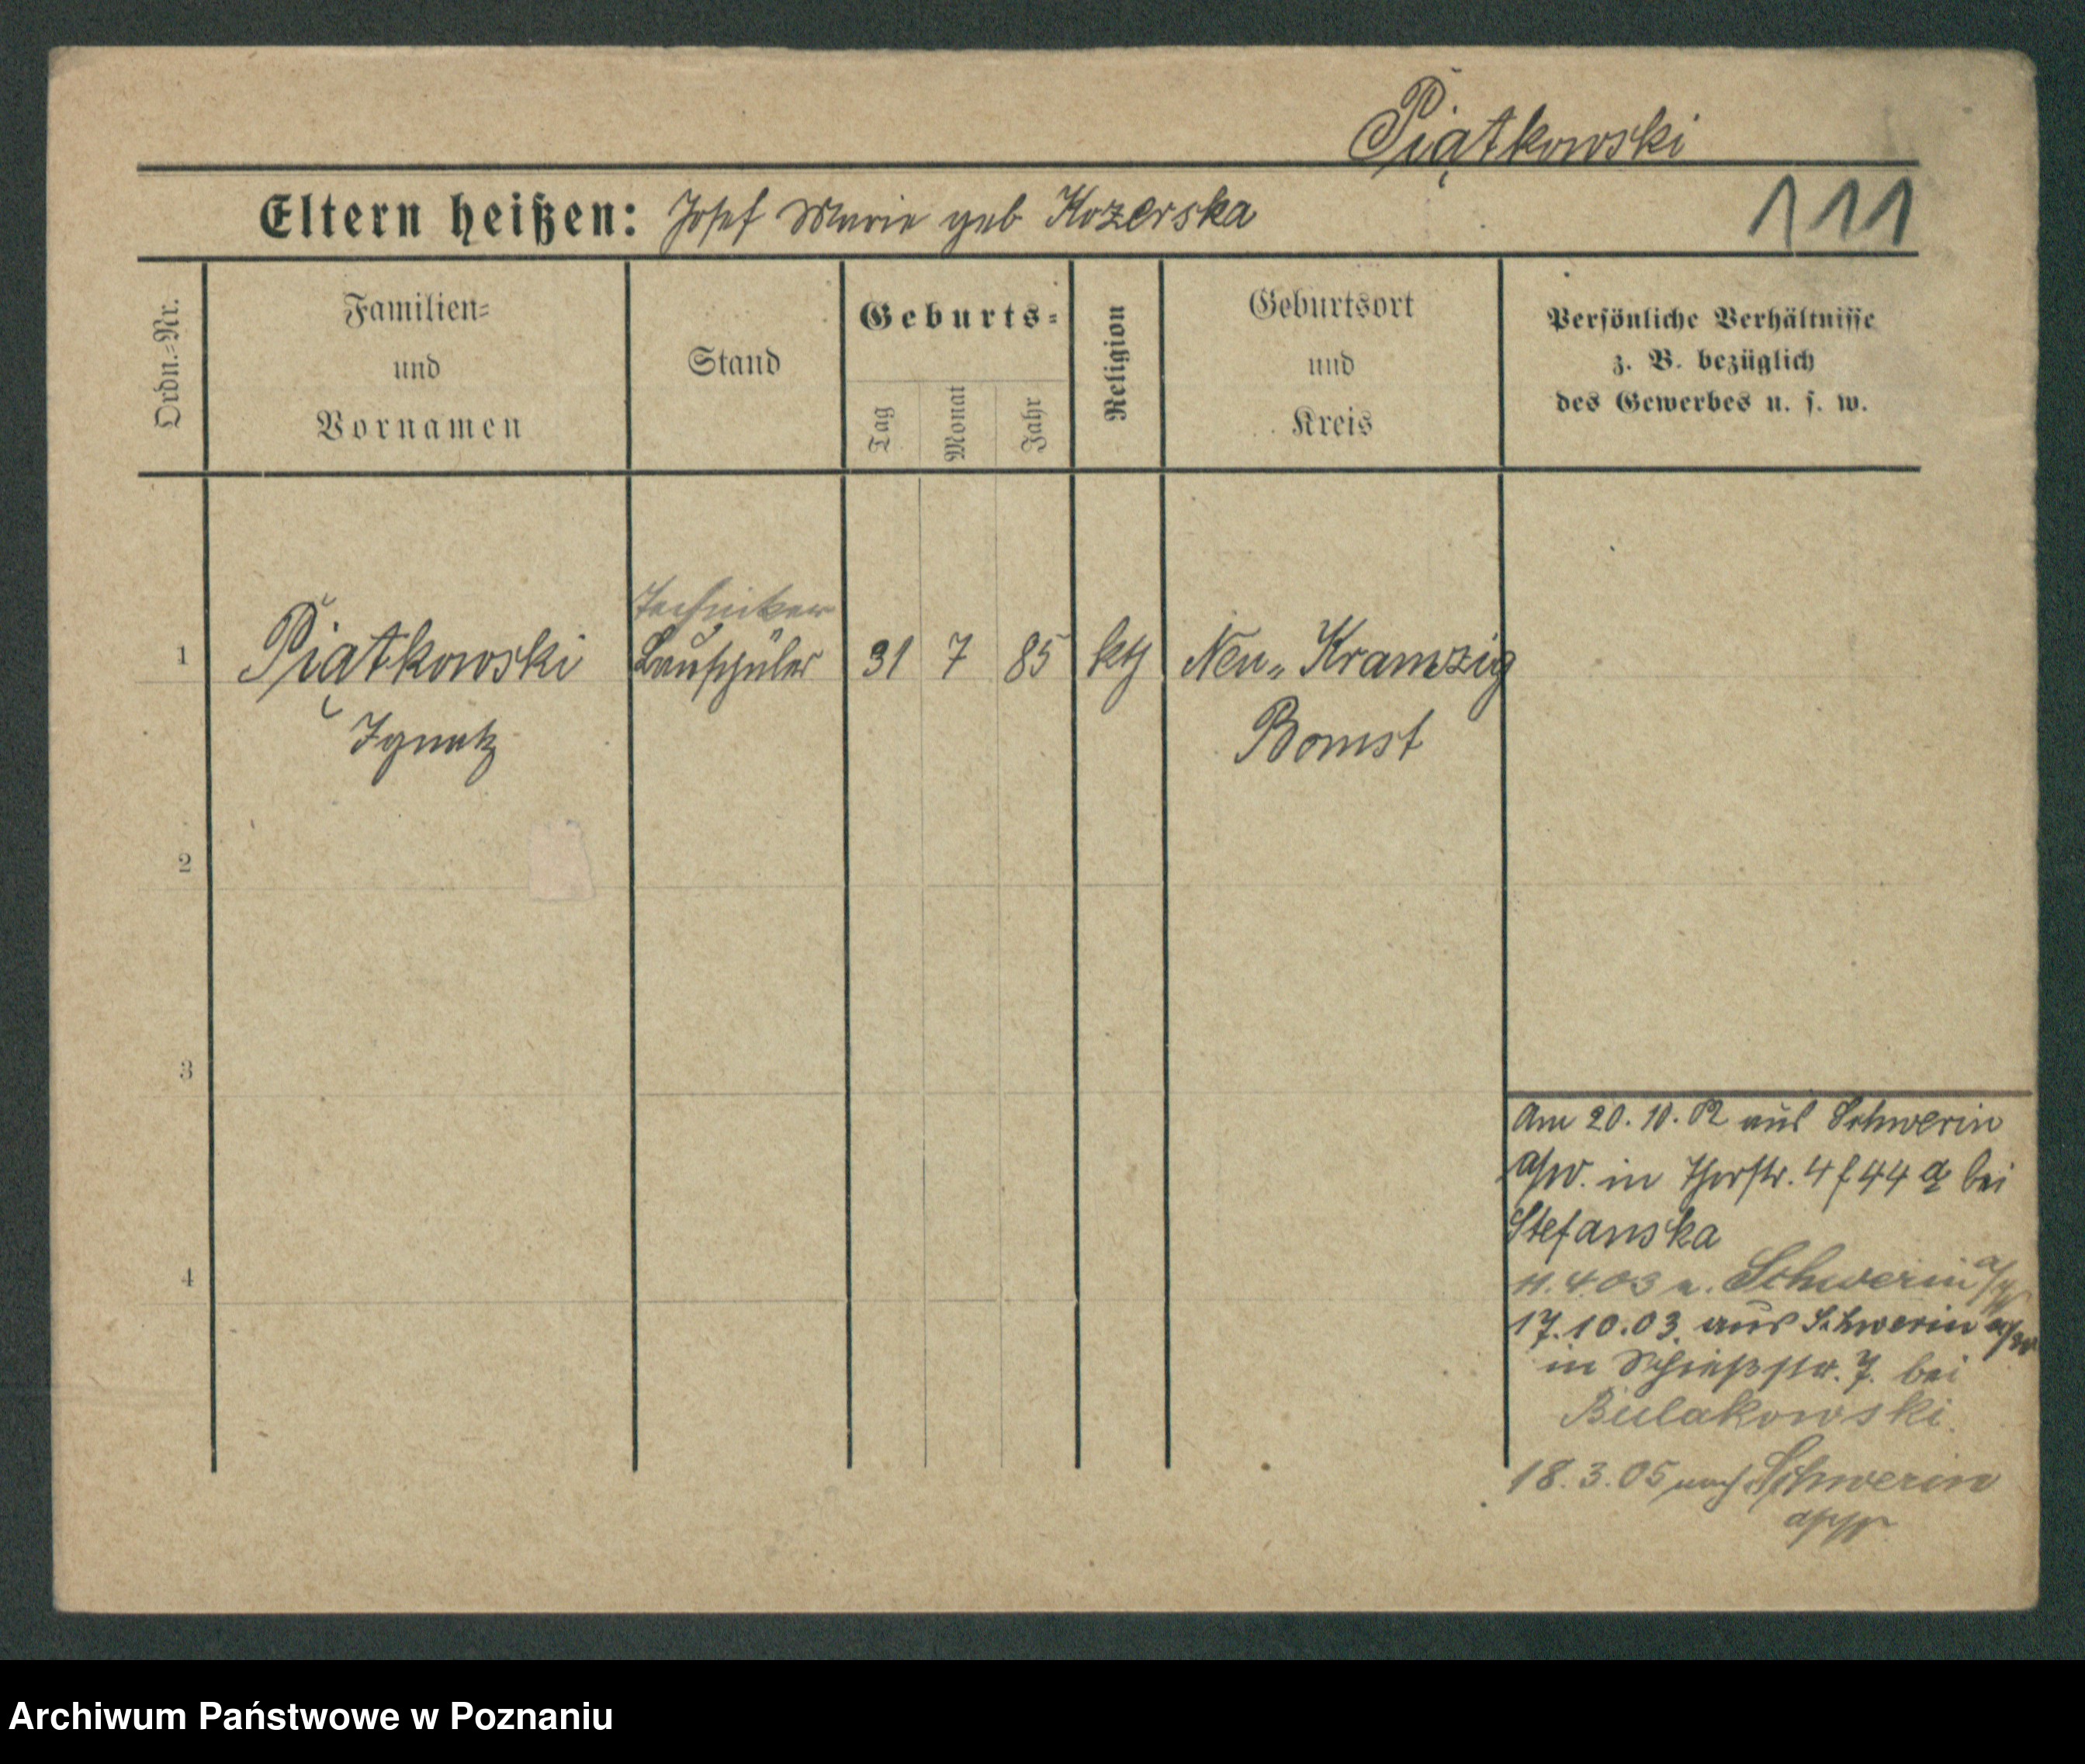 Piątkowski
Eltern heißen: Josef Marie geb Kozerska
111
Ordn.=Nr.
Familien=
und
Vornamen
Stand
Geburts=
Tag
Monat
Jahr
Religion
Geburtsort
und
Kreis
Persönliche Verhältnisse
z. B. bezüglich
des Gewerbes u. s. w.
Techniker
1 Piątkowski Bauschüler 31 7 85 kth Neu-Kramzig
Ignatz Bomst
2
3
4
Am 20.10.02 aus Schwerin
a/W. in Thorstr. 4 f 44 a bei
Stefanska
11.4.03 n. Schwerin a/W
17.10.03. aus Schwerin a/W
in Schießstr. 7. bei
Bulakowski.
18.3.05 nach Schwerin
a/W
Archiwum Państwowe w Poznaniu